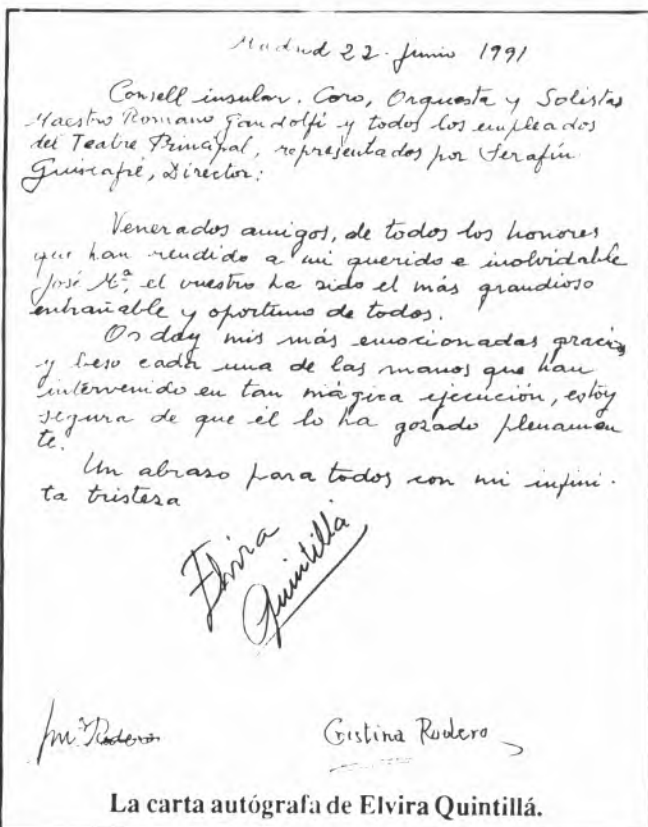 Madrid 22. Junio 1991
Consell insular. Coro, Orquesta y Solistas
Maestro Romano Gandolfi y todos los empleados
del Teatre Principal, representados por Serafín
Guiscafré, Director:
Venerados amigos, de todos los honores
que han rendido a mi querido e inolvidable
José Mª, el vuestro ha sido el más grandioso
entrañable y oportuno de todos.
Os doy mis más emocionadas gracias
y beso cada una de las manos que han
intervenido en tan mágica ejecución, estoy
segura de que él lo ha gozado plenamen
te.
Un abraso para todos con mi infini-
ta tristesa
Elvira
Quintillá
Mª Rodero
Cristina Rodero
La carta autógrafa de Elvira Quintillá.